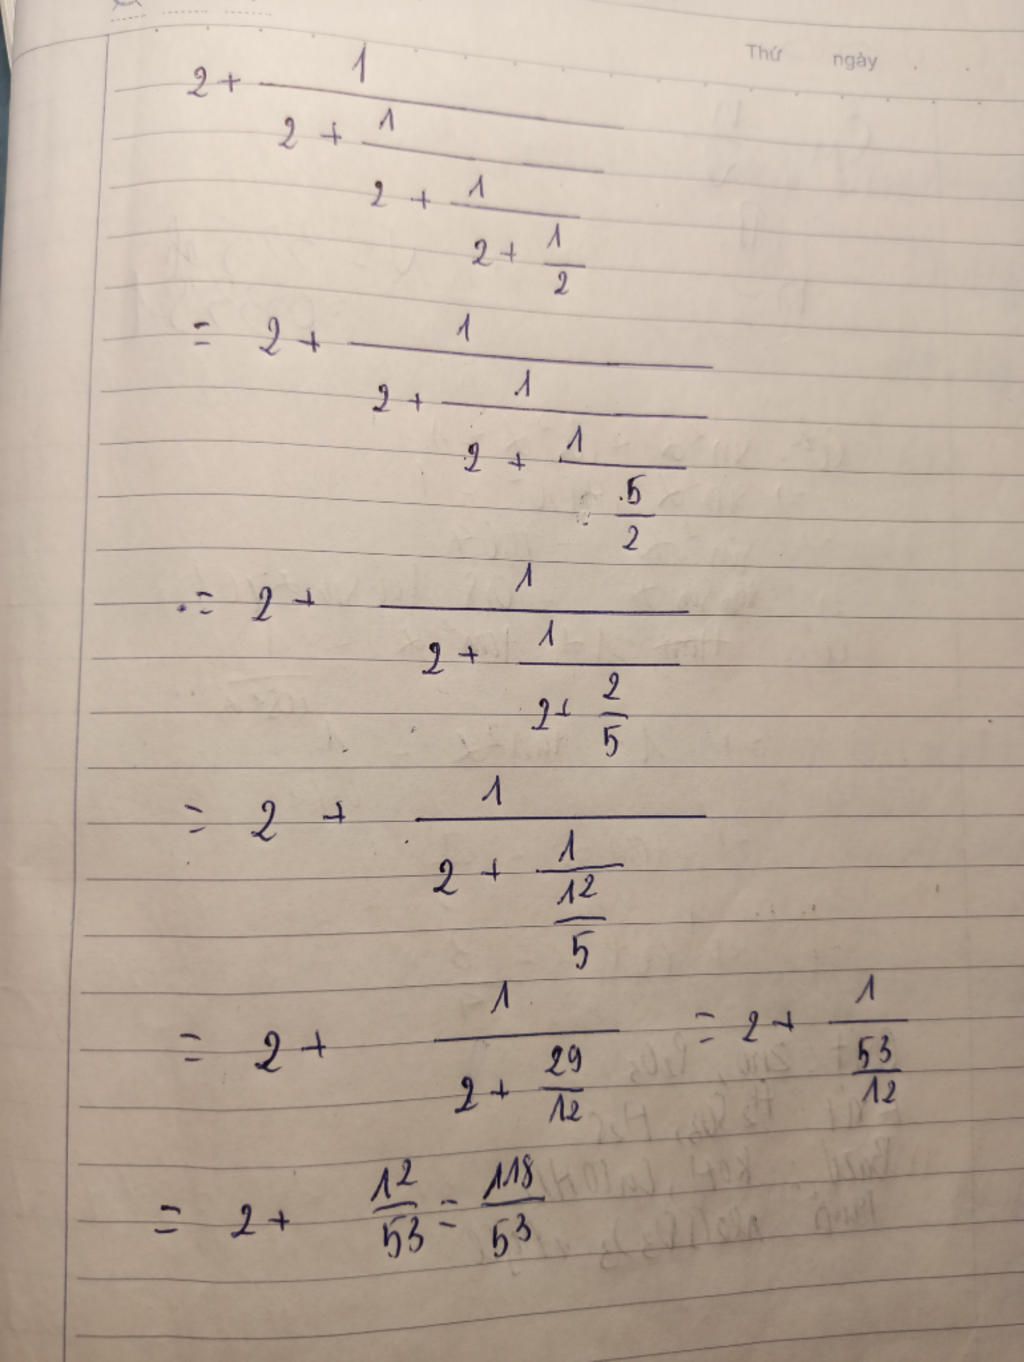 Thứ ngày
2 + 1
2 + 1
2 + 1
2 + 1
2
= 2 + 1
2 + 1
2 + 1
5
2
= 2 + 1
2 + 1
2 + 2
5
= 2 + 1
2 + 1
12
5
= 2 + 1 = 2 + 1
2 + 29 53
12 12
= 2 + 12 = 118
53 53